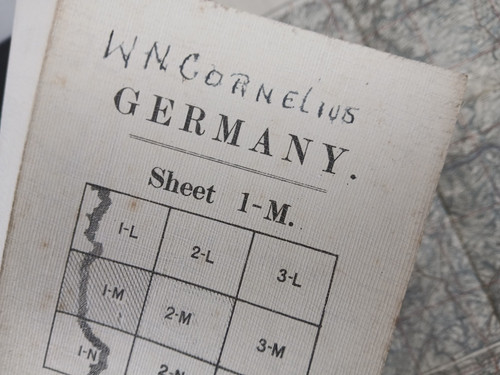 WN CORNELIUS
GERMANY.
Sheet 1-M.
1-L 2-L 3-L
1-M 2-M 3-M
1-N 2-N